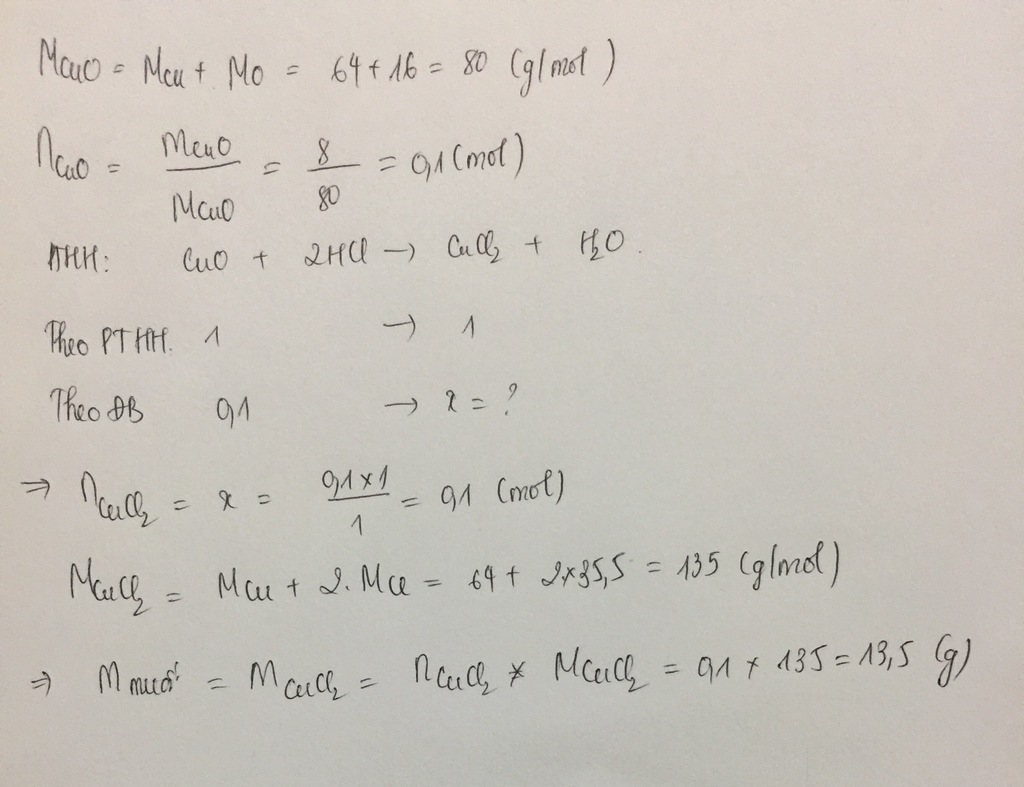 MCuO = MCu + MO = 64 + 16 = 80 (g/mol)
nCuO = mCuO / MCuO = 8 / 80 = 0,1 (mol)
PTHH: CuO + 2HCl → CuCl2 + H2O.
Theo PTHH. 1 → 1
Theo ĐB 0,1 → x = ?
⇒ nCuCl2 = x = 0,1 × 1 / 1 = 0,1 (mol)
MCuCl2 = MCu + 2. MCl = 64 + 2×35,5 = 135 (g/mol)
⇒ m muối = mCuCl2 = nCuCl2 * MCuCl2 = 0,1 × 135 = 13,5 (g)